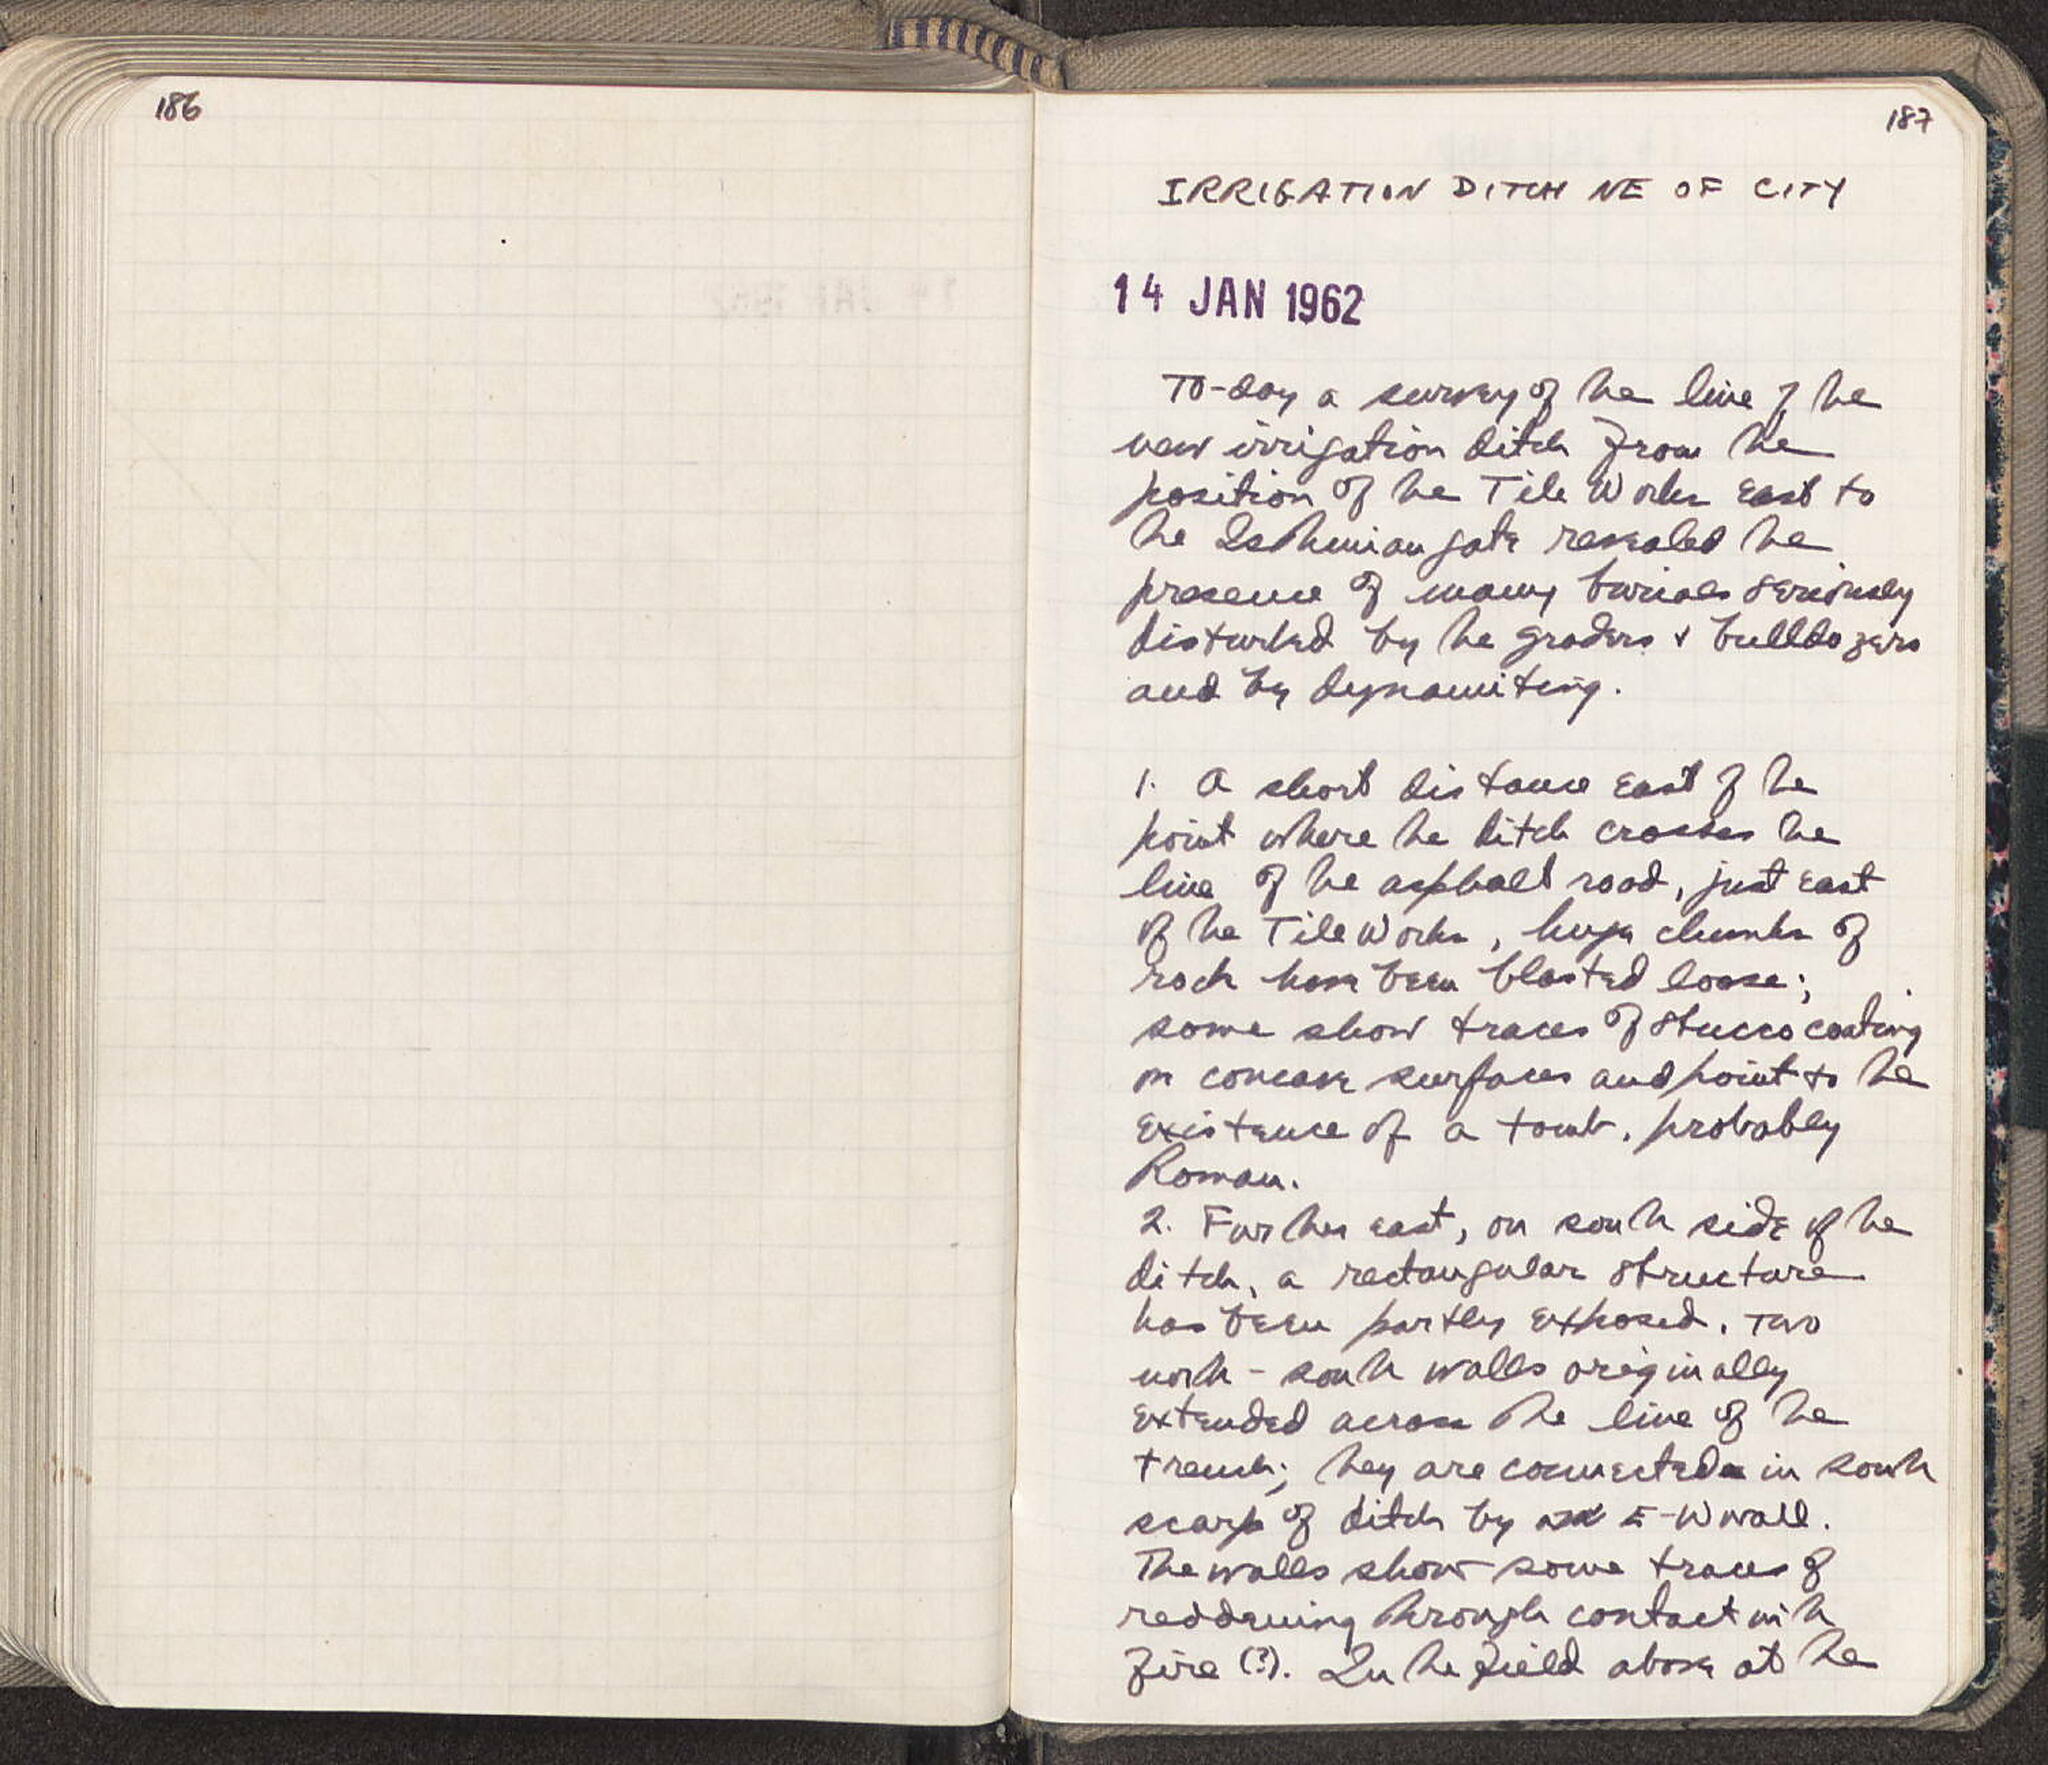 186
187
IRRIGATION DITCH NE OF CITY
14 JAN 1962
To-day a survey of the line of the
new irrigation ditch from the
position of the Tile Works east to
the Isthmian gate revealed the
presence of many burials seriously
disturbed by the graders + bulldozers
and by dynamiting.
1. A short distance east of the
point where the ditch crosses the
line of the asphalt road, just east
of the Tile Works, huge chunks of
rock have been blasted loose;
some show traces of stucco coating
on concave surfaces and point to the
existence of a tomb, probably
Roman.
2. Further east, on south side of the
ditch, a rectangular structure
has been partly exposed. Two
north-south walls originally
extended across the line of the
trench; they are connected in south
scarp of ditch by E-W wall.
The walls show some traces of
reddening through contact with
fire (?). In the field above at the